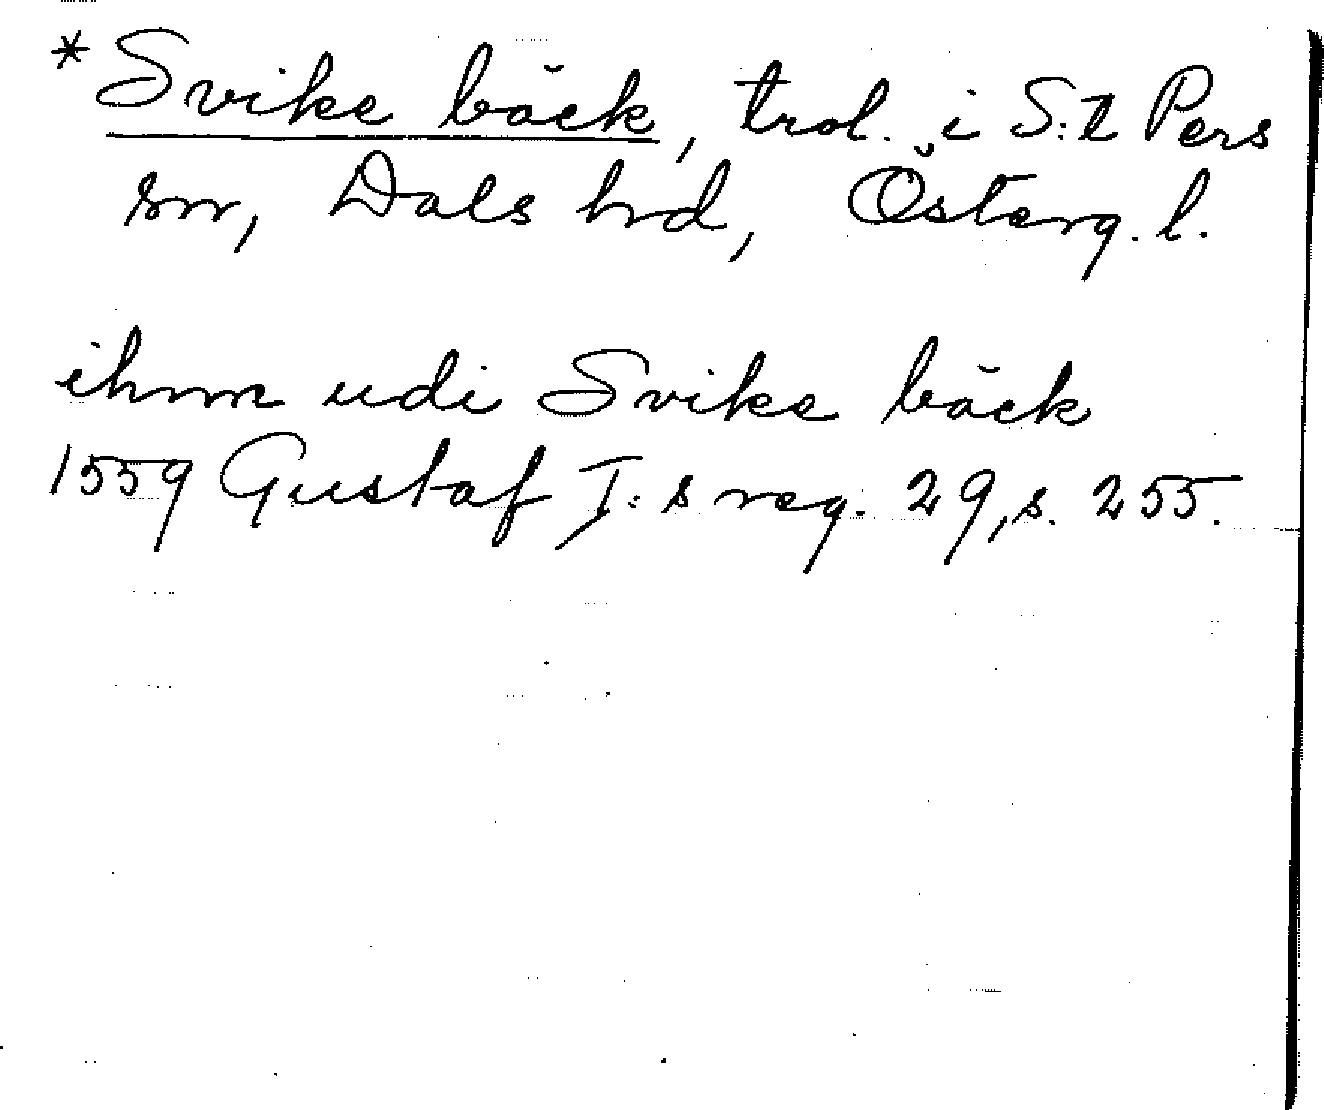 * Svike bäck, trol. i S:t Pers
sn, Dals hd, Österg. l.
ihm udi Svike bäck
1559 Gustaf I:s reg. 29, s. 255.